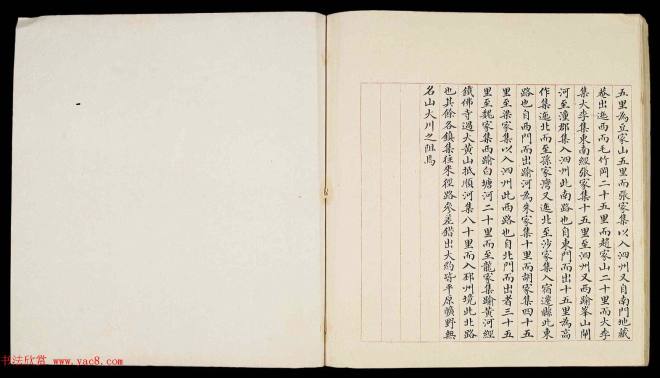 五里為立家山五里而張家集以入泗州又自南門地藏
菴出迤西而毛竹岡二十五里而趙家山二十里而大李
集大李集東南經張家集十五里至泗州又西踰峯山閘
河至潼郡集入泗州此南路也自東門而出十五里為高
作集迤北而至孫家灣又迤北至沙家集入宿遷縣此東
路也自西門而出踰河為朱家集十里而胡家集四十五
里至梁家集以入泗州此西路也自北門而出者三十五
里至魏家集西踰白塘河二十里而至龍家集踰黃河經
鐵佛寺過大黃山抵順河集八十里而入邳州境此北路
也其餘各鎮集往來徑路參差錯出大約皆平原曠野無
名山大川之阻焉
书法欣赏 www.yac8.com